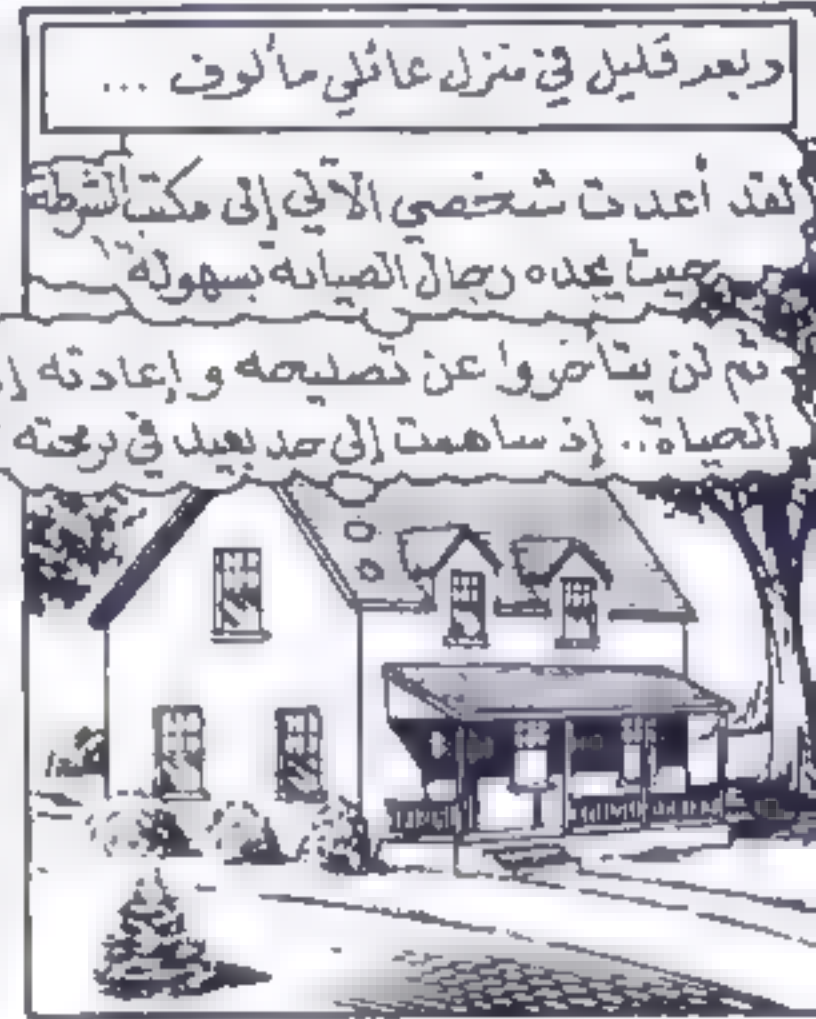 وبعد قليل في منزل عائلي مألوف ...
لقد أعدت شخصي الآلي إلى مكتب الشرطة
حيث يجده رجال الصيانه بسهوله
ثم لن يتأخروا عن تصليحه وإعادته
الحياة.. إذ ساهمت إلى حد بعيد في برمجته